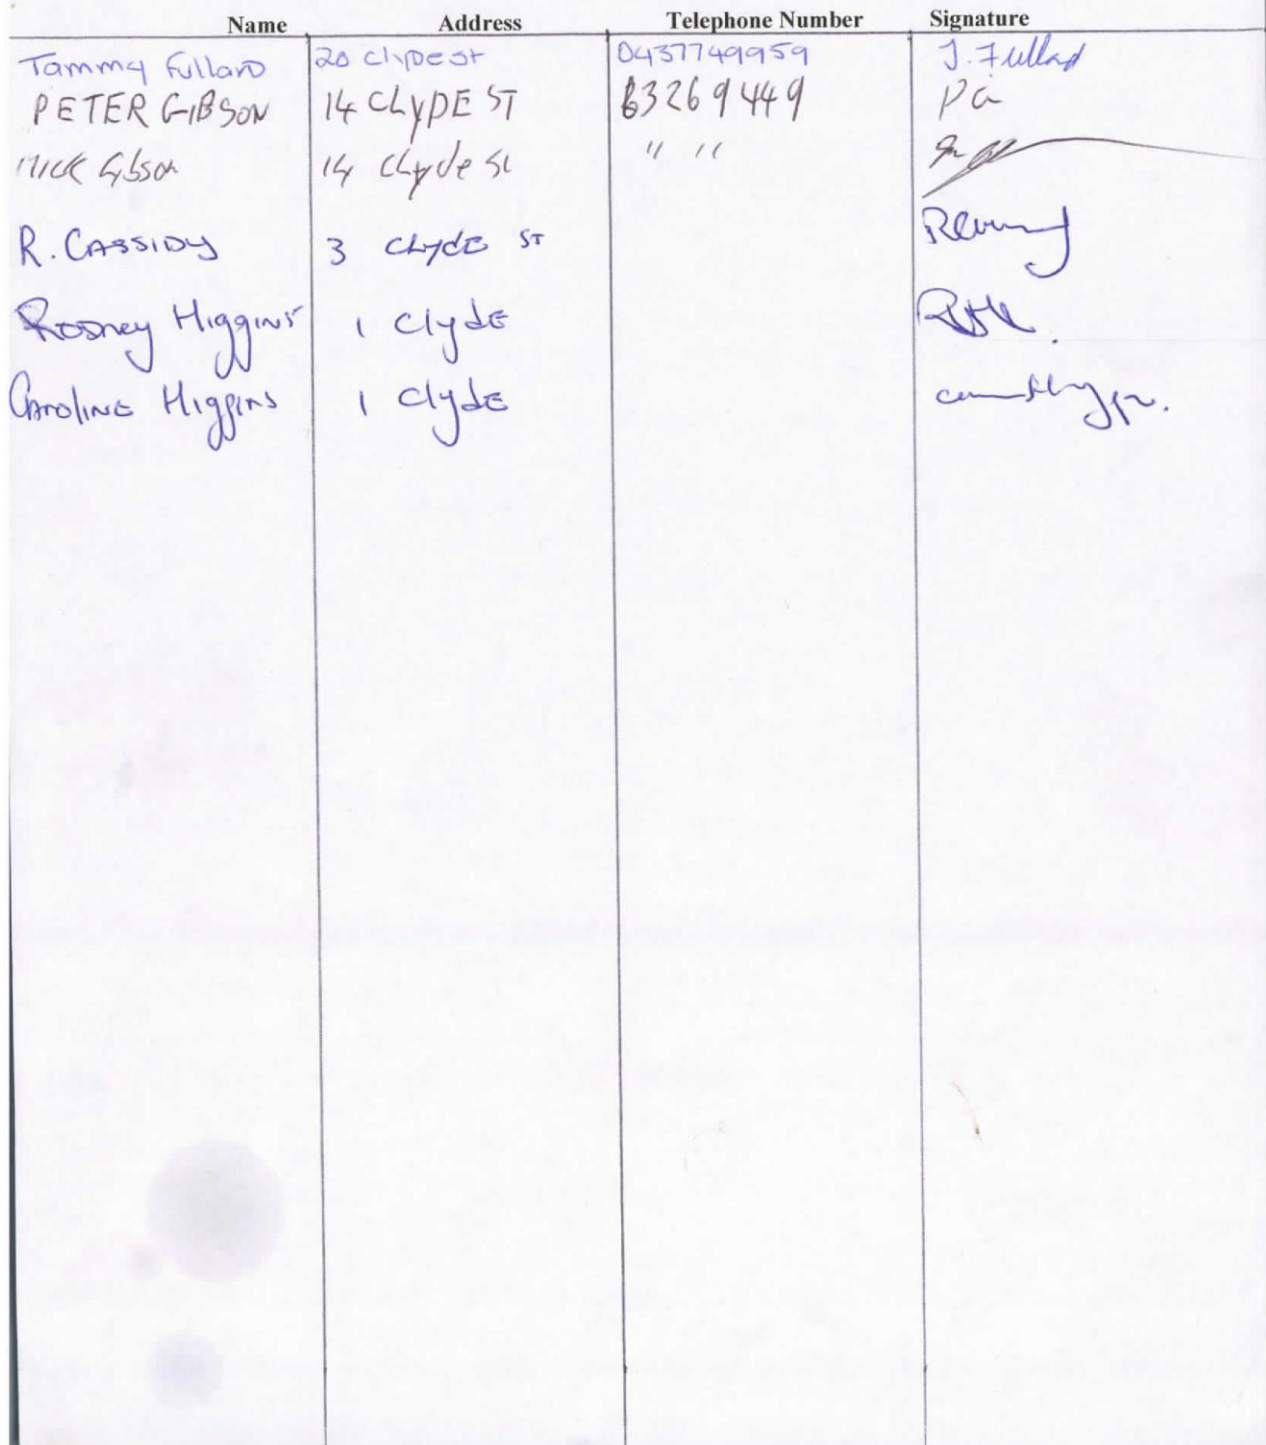 Name Address Telephone Number Signature
Tammy Fullard 20 Clyde st 0437749959 J. Fullard
PETER GIBSON 14 CLYDE ST 63269449 PG
Mick Gibson 14 Clyde St " "
R. CASSIDY 3 Clyde ST
Rodney Higgins 1 Clyde
Caroline Higgins 1 Clyde